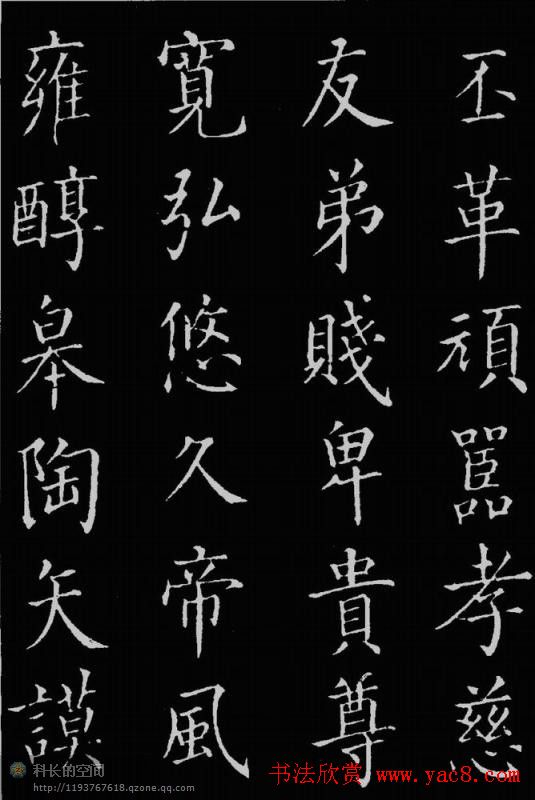 丕革頑嚚孝慈
友弟賤卑貴尊
寛弘悠久帝風
雍醇皋陶矢謨
科长的空间
http://1193767618.qzone.qq.com
书法欣赏 www.yac8.com